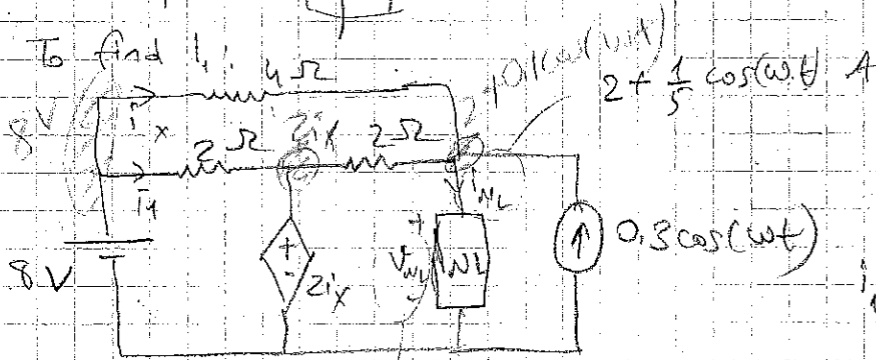 To find I₁:
4 Ω
2 + 0.1 cos(ωt)
2 + 1/5 cos(ωt) A
8V
i
x
2 Ω
2ix
2 Ω
i₁
iNL
8V
+
-
2ix
+
VNL
-
NL
0.3 cos(ωt)
i₁